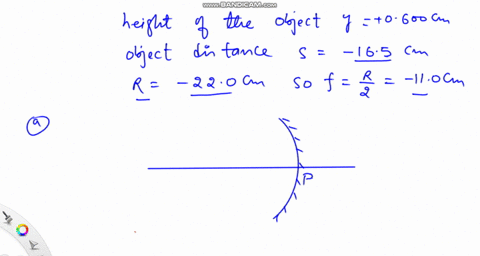 WWW.BANDICAM.COM
height of the object y = +0.600 cm
object distance s = -16.5 cm
R = -22.0 cm so f = R/2 = -11.0 cm
a
P